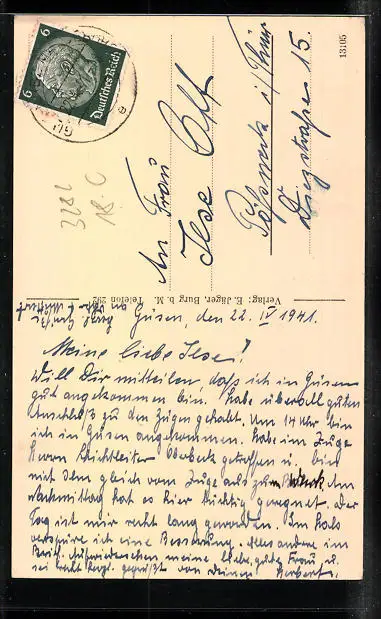 Deutsches Reich
6
6
An Frau
Ilse Ott
Pößneck i/Thür
Diezstraße 15.
13105
3282
18.C
Verlag: E. Jäger, Burg b. M. Telefon 292
Güsen, den 22. IV 1941.
Meine liebe Ilse!
Will Dir mitteilen, daß ich in Güsen
gut angekommen bin. Habe überall guten
Anschluß zu den Zügen gehabt. Um 14 Uhr bin
ich in Güsen angekommen. Habe im Zuge
Herrn Schichtleiter Overbeck getroffen u. bin
mit dem gleich vom Zuge aus zum Werk. Am
Nachmittag hat es hier tüchtig geregnet. Der
Tag ist mir recht lang geworden. Im Hals
verspüre ich eine Besserung. Alles andere im
Brief. Aufwiedersehen meine liebe, gute Frau, u.
sei recht herzl. gegrüßt von Deinem Herbert.